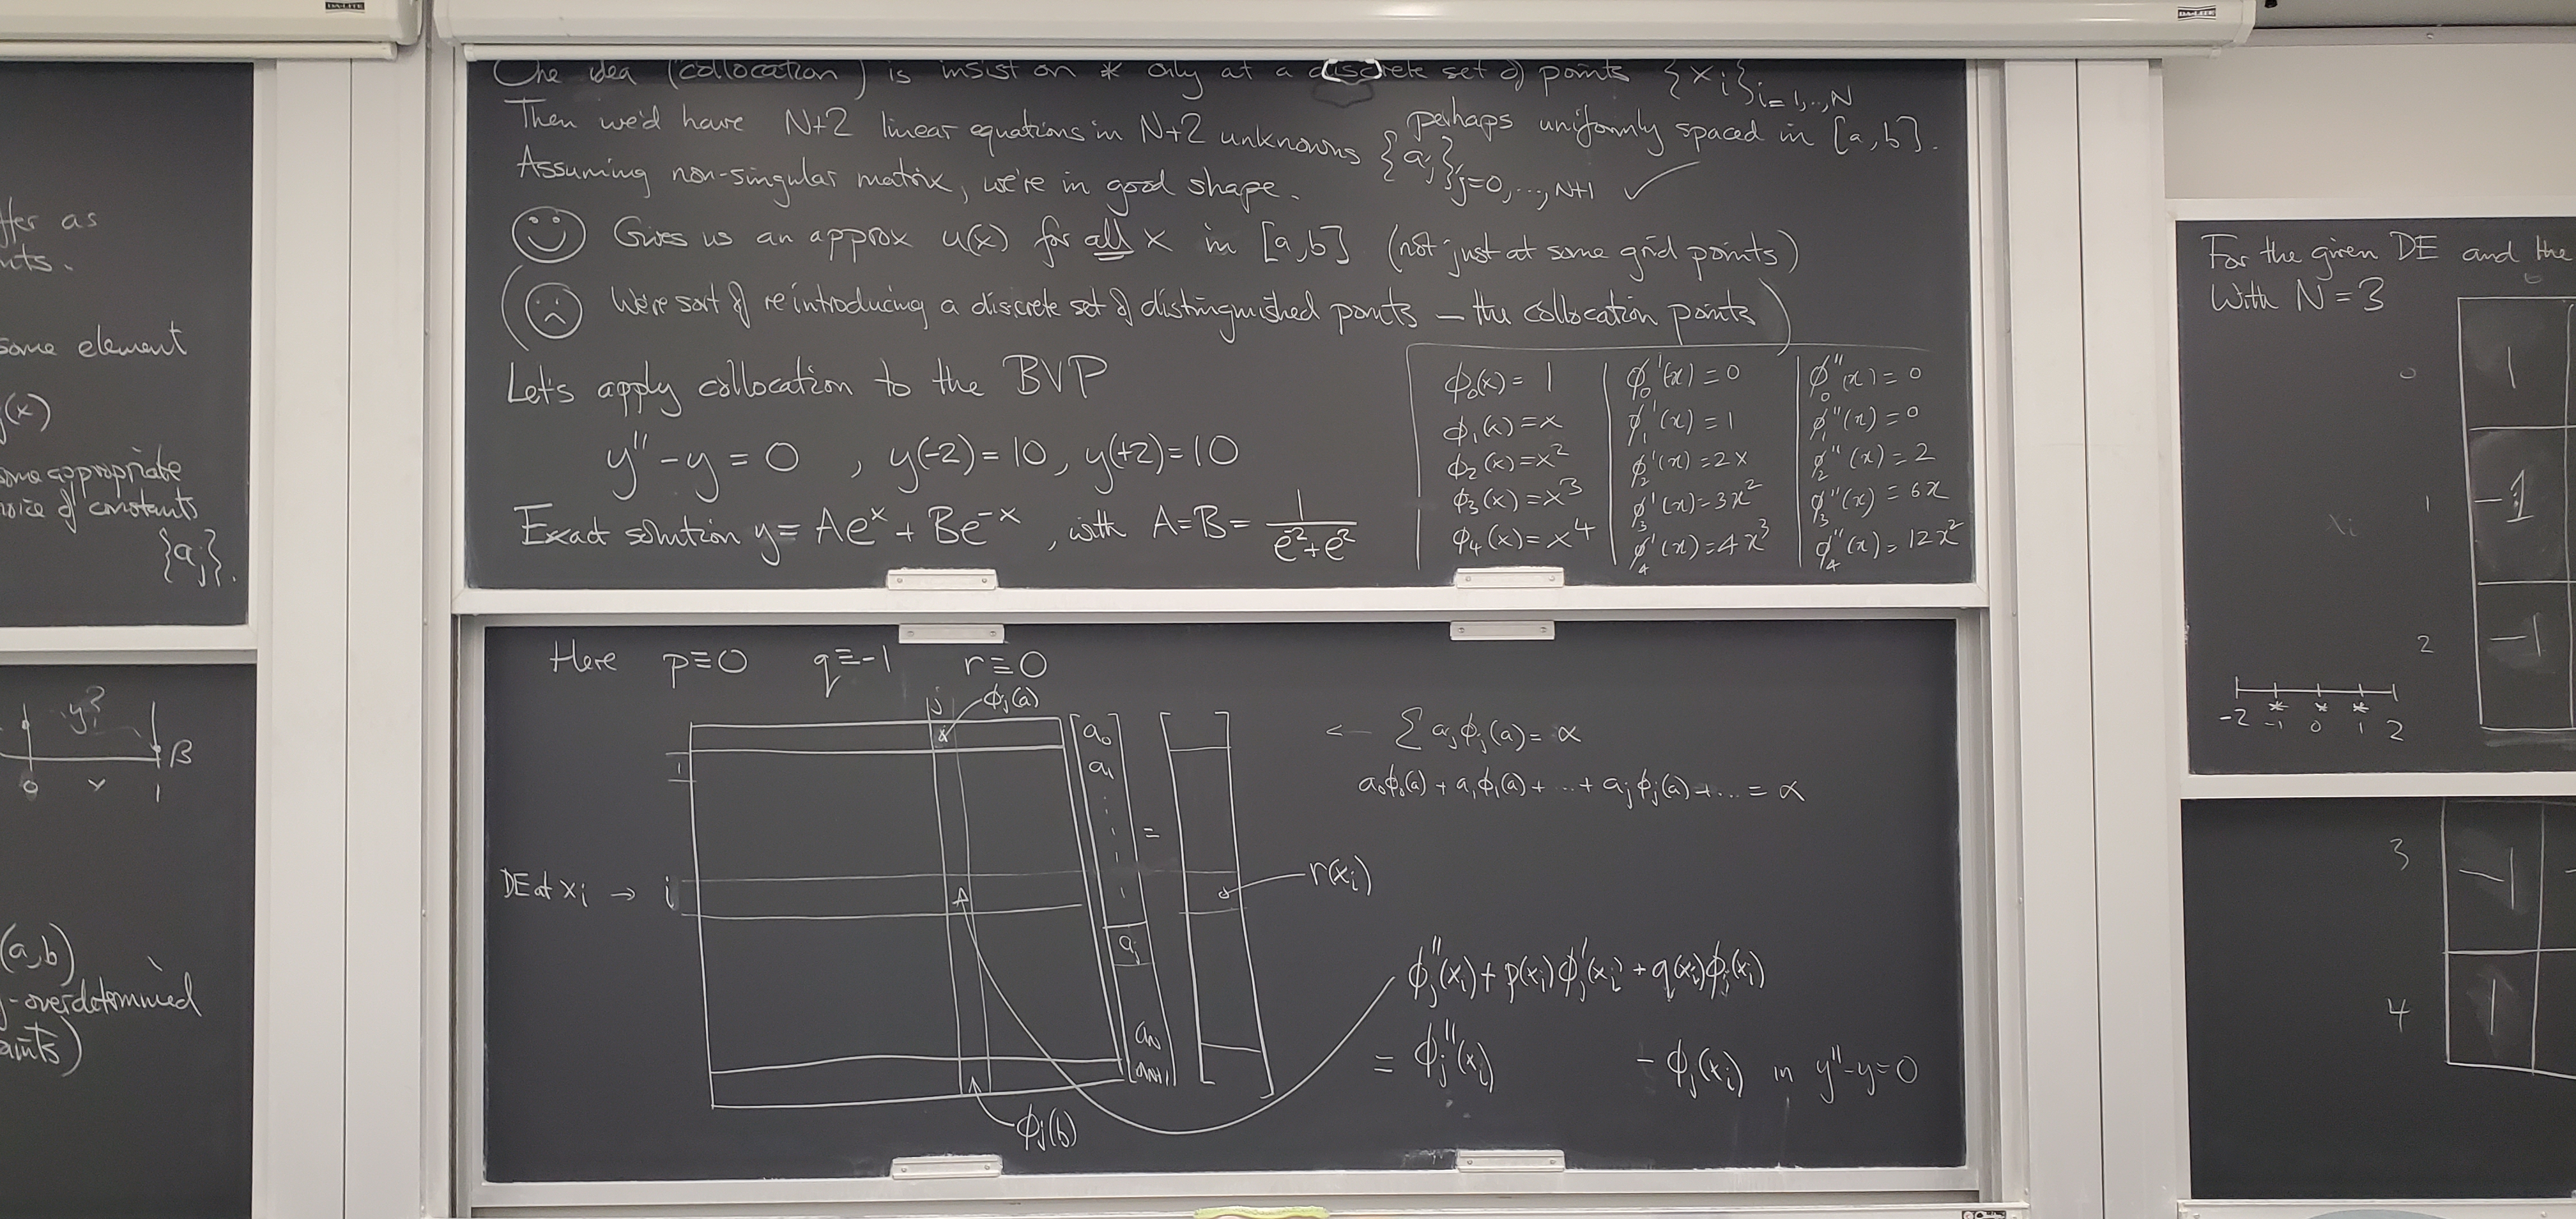 DA-LITE
DA-LITE
ffer as
nts.
some element
(x)
some appropriate
choice of constants
{aj}.
y?
β
0 x 1
(a,b)
-overdetermined
aints)
One idea (collocation) is insist on * only at a discrete set of points {xi}i=1,..,N
perhaps uniformly spaced in [a,b].
Then we'd have N+2 linear equations in N+2 unknowns {aj}j=0,...,N+1 ✓
Assuming non-singular matrix, we're in good shape.
Gives us an approx u(x) for all x in [a,b] (not just at some grid points)
(We're sort of reintroducing a discrete set of distinguished points – the collocation points)
Let's apply collocation to the BVP
y'' - y = 0 , y(-2) = 10, y(+2) = 10
Exact solution y = Ae^x + Be^-x , with A=B= 1/(e^2+e^2)
ϕ0(x) = 1 | ϕ0'(x) = 0 | ϕ0''(x) = 0
ϕ1(x) = x | ϕ1'(x) = 1 | ϕ1''(x) = 0
ϕ2(x) = x^2 | ϕ2'(x) = 2x | ϕ2''(x) = 2
ϕ3(x) = x^3 | ϕ3'(x) = 3x^2 | ϕ3''(x) = 6x
ϕ4(x) = x^4 | ϕ4'(x) = 4x^3 | ϕ4''(x) = 12x^2
Here p≡0 q≡-1 r≡0
j ϕj(a)
x
a0
a1
1
=
DE at xi → i
aj
aN
aN+1
r(xi)
ϕj(b)
← Σ ajϕj(a) = α
a0ϕ0(a) + a1ϕ1(a) + ... + ajϕj(a) + ... = α
ϕj''(xi) + p(xi)ϕj'(xi) + q(xi)ϕj(xi)
= ϕj''(xi) - ϕj(xi) in y''-y=0
For the given DE and the
With N = 3
0
0 1
1 -1
xi
2 -1
* * *
-2 -1 0 1 2
3 -1 -
4 1